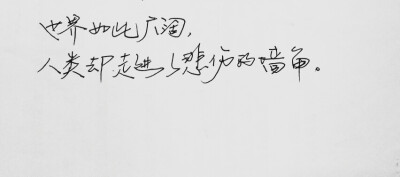 世界如此广阔,
人类却走进了悲伤的墙角。